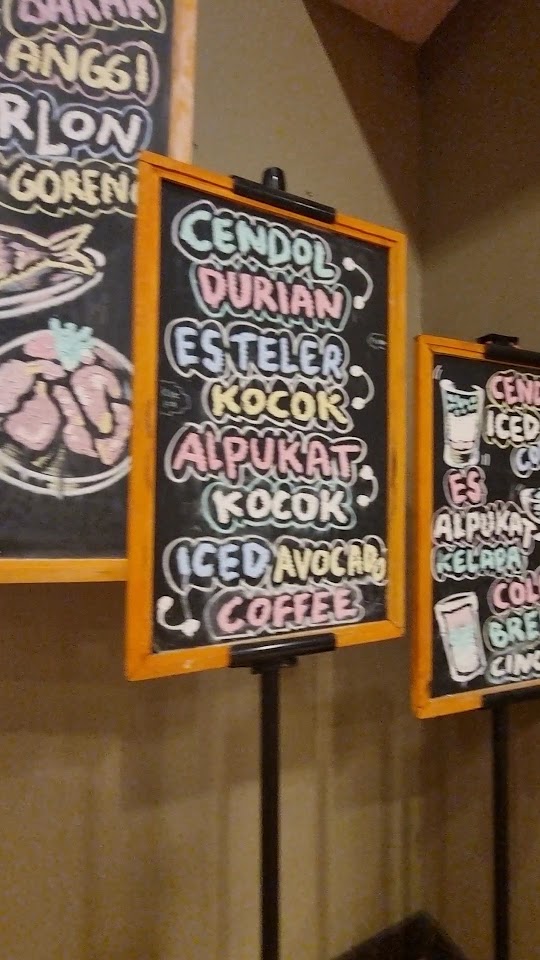 BAKAR
ANGGI
RLON
GOREN
CENDOL
DURIAN
ES TELER
KOCOK
ALPUKAT
KOCOK
ICED AVOCADO
COFFEE
CEND
ICED
CO
ES
ALPUKAT
KELAPA
COL
BRE
CINC